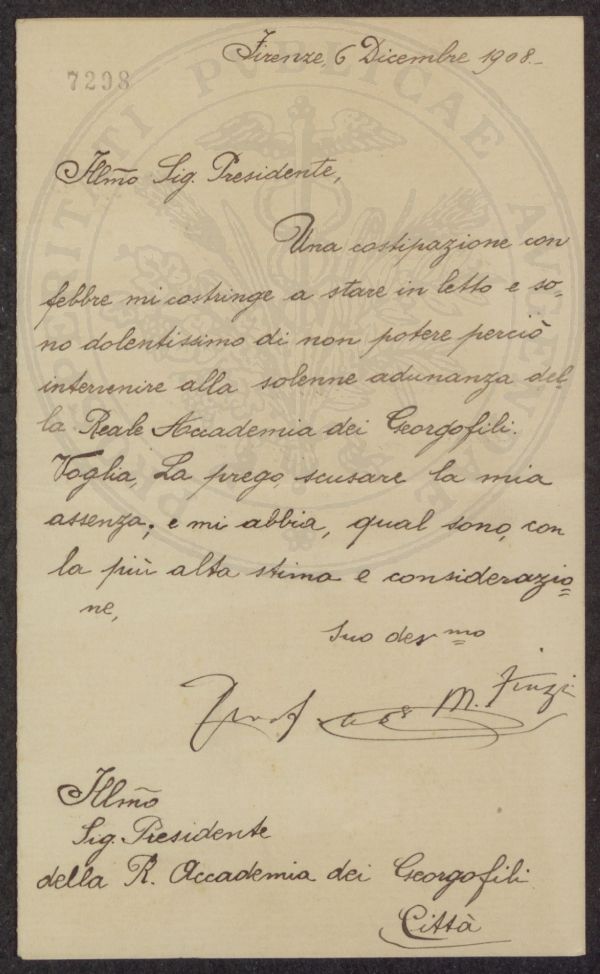 Firenze, 6 Dicembre 1908.
7298
Illm̃o Sig. Presidente,
Una costipazione con
febbre mi costringe a stare in letto e so=
no dolentissimo di non potere perciò
intervenire alla solenne adunanza del=
la Reale Accademia dei Georgofili.
Voglia, La prego, scusare la mia
assenza; e mi abbia, qual sono, con
la più alta stima e considerazio=
ne,
Suo dev.mo
Prof. M. Finzi
Illm̃o
Sig. Presidente
della R. Accademia dei Georgofili
Città
PROSPERITATI PVBLICAE AVGENDAE